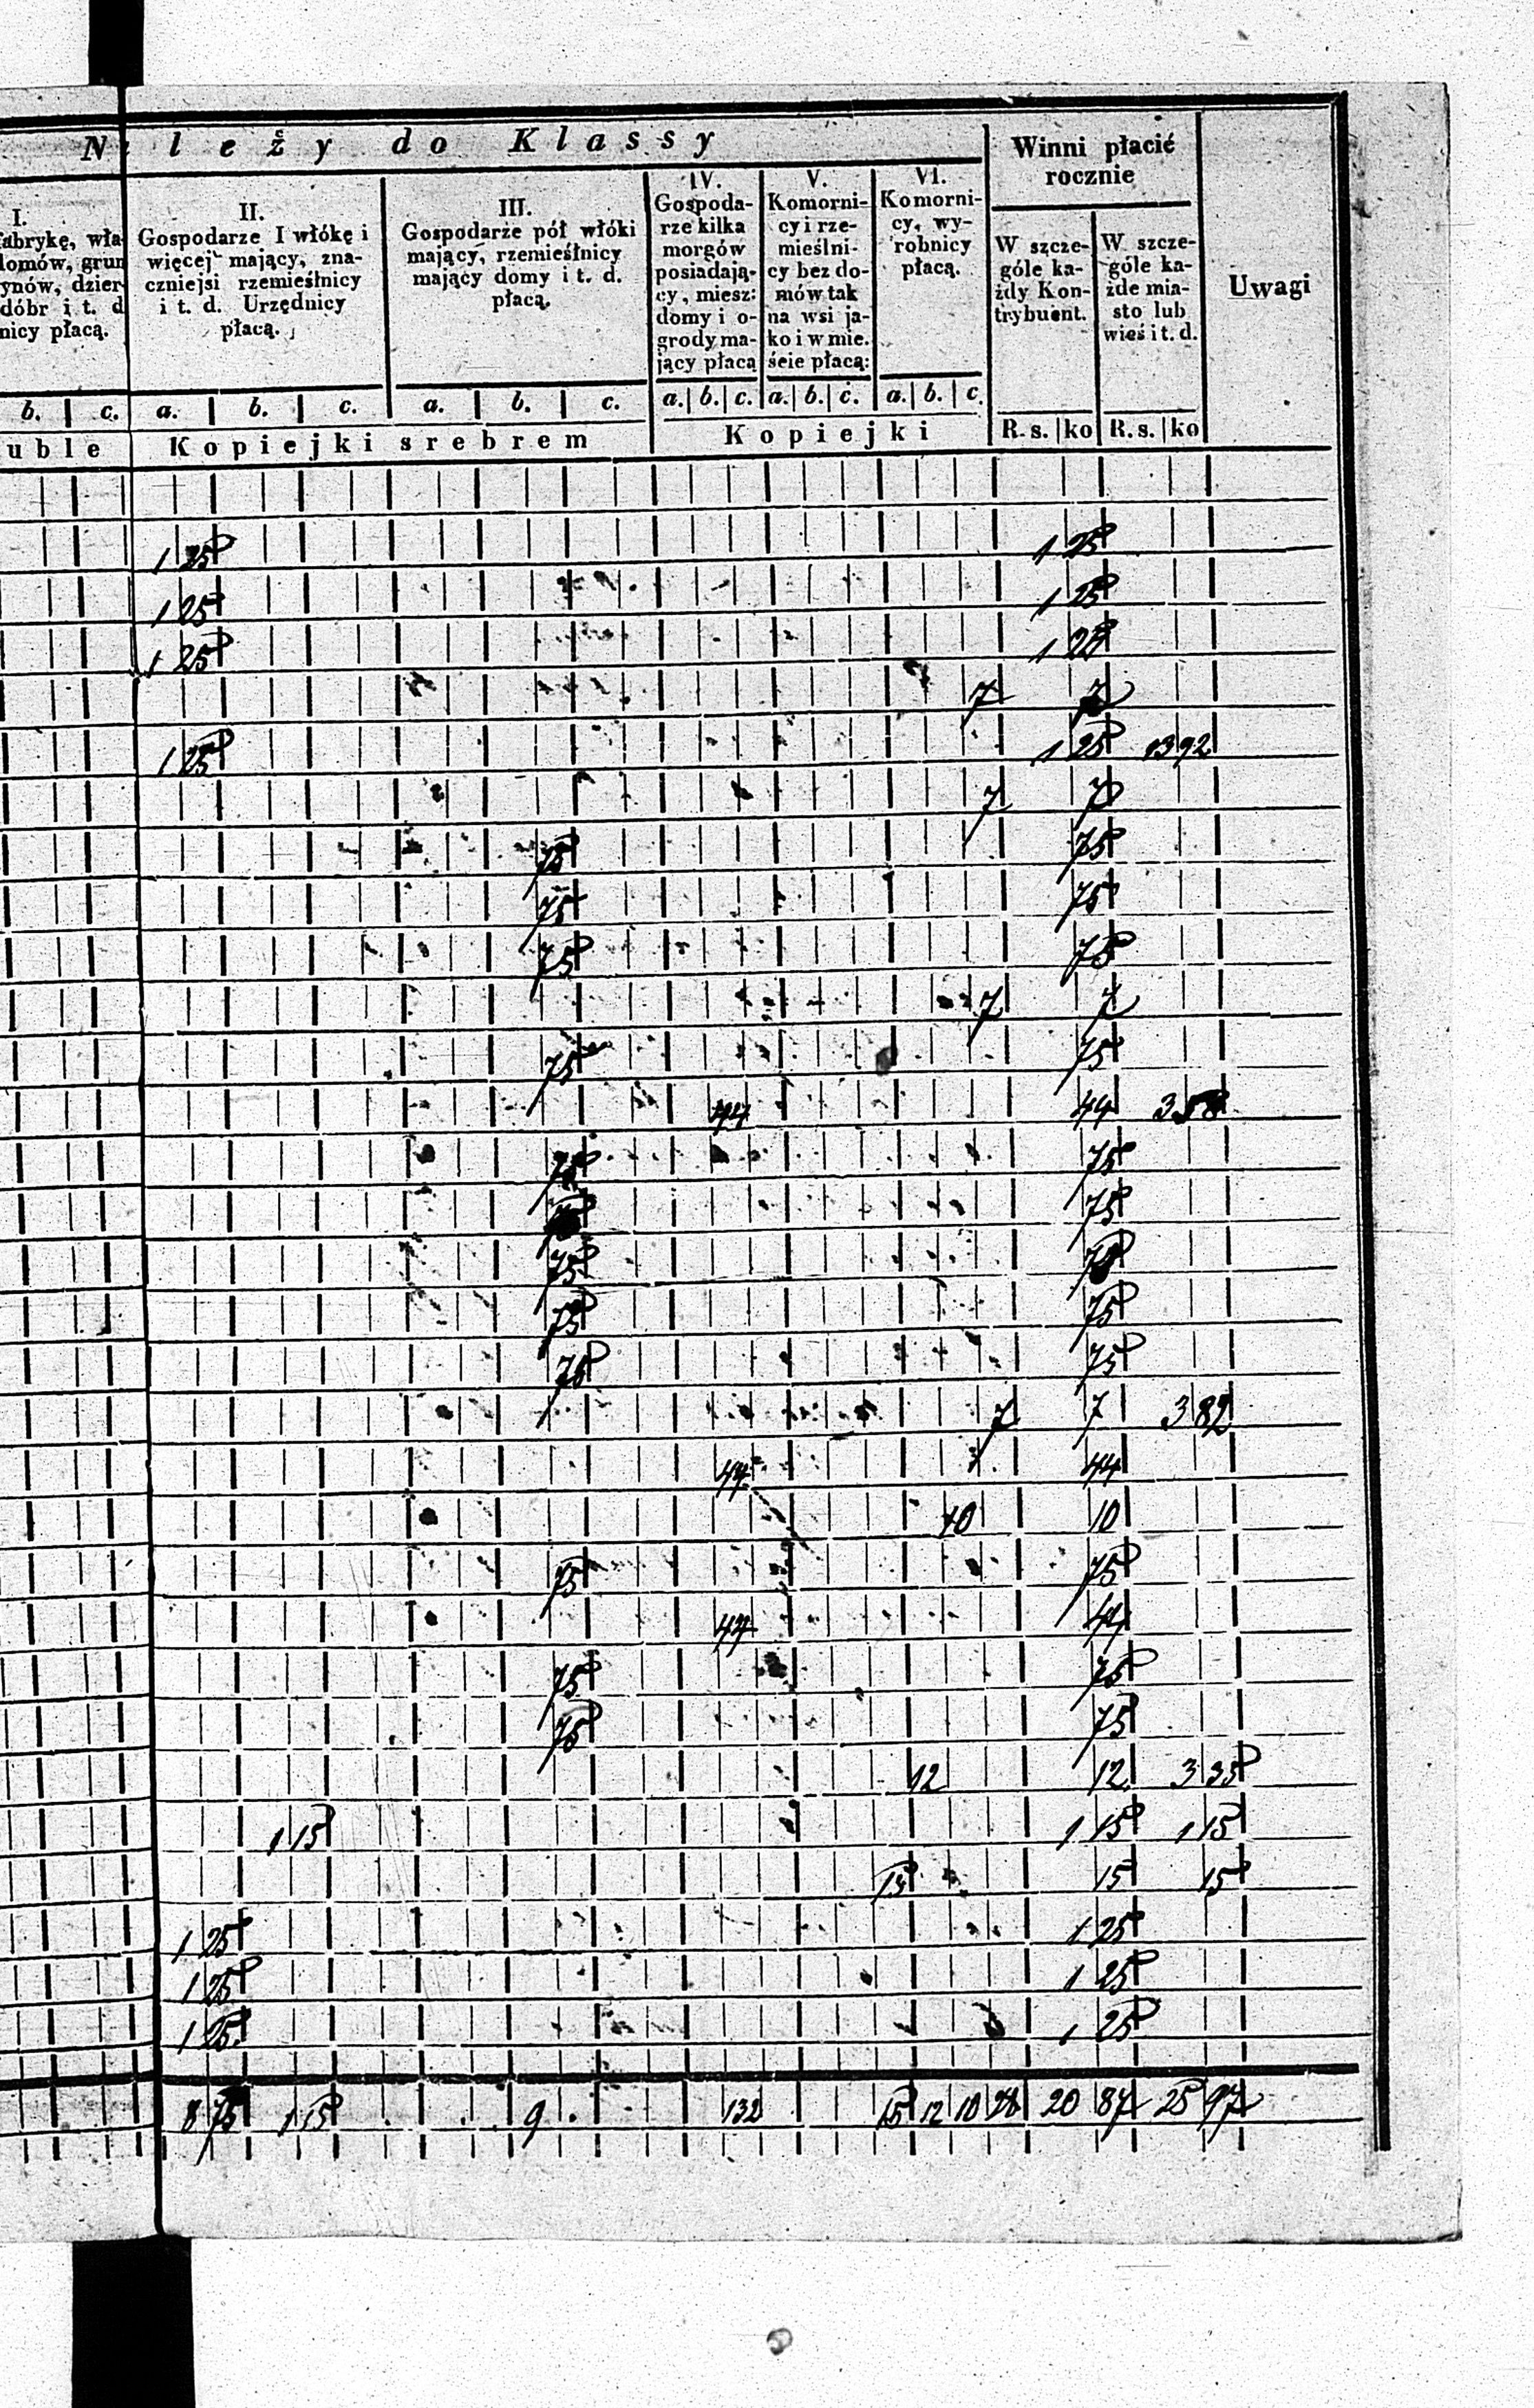 Należy do Klassy
Winni płacić rocznie
Uwagi
I.
fabrykę, wła-
domów, grun
ynów, dzier-
dóbr i t. d
nicy płacą.
II.
Gospodarze I włókę i
więcej mający, zna-
czniejsi rzemieślnicy
i t. d. Urzędnicy
płacą.
III.
Gospodarze pół włóki
mający, rzemieślnicy
mający domy i t. d.
płacą.
IV.
Gospoda-
rze kilka
morgów
posiadają-
cy, miesz:
domy i o-
grody ma-
jący płacą
V.
Komorni-
cy i rze-
mieślni-
cy bez do-
mów tak
na wsi ja-
ko i w mie.
ście płacą:
VI.
Komorni-
cy, wy-
robnicy
płacą.
W szcze-
góle ka-
żdy Kon-
trybuent.
W szcze-
góle ka-
żde mia-
sto lub
wieś i t. d.
b. c. a. b. c. a. b. c. a. b. c. a. b. c. a. b. c.
uble Kopiejki srebrem Kopiejki R. s. ko R. s. ko
1 25 1 25
1 25 1 25
1 25 1 25
7 7
1 25 1 25 13 92
7 7
75 75
75 75
75 75
7 7
75 75
44 44 3 58
75 75
75 75
75 75
75 75
75 75
7 7 3 82
44 44
10 10
75 75
44 44
75 75
75 75
12 12 3 35
1 15 1 15 1 15
15 15 15
1 25 1 25
1 25 1 25
1 25 1 25
8 75 1 15 9 . 132 15 12 10 28 20 87 25 97